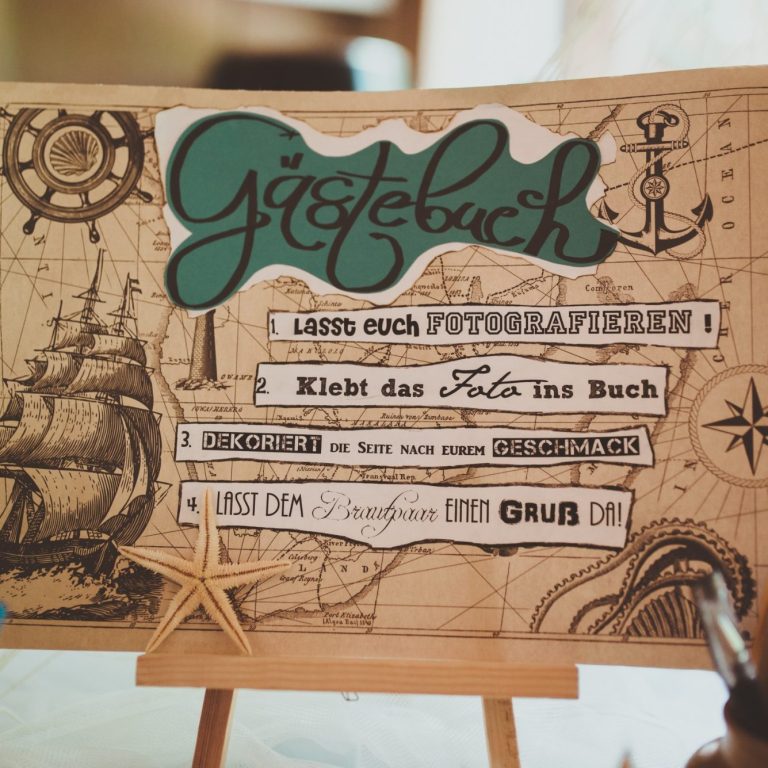 Gästebuch
1. Lasst euch FOTOGRAFIEREN !
2. Klebt das Foto ins Buch
3. DEKORIERT DIE SEITE NACH EUREM GESCHMACK
4. LASST DEM Brautpaar EINEN GRUß DA!
OCEAN
Comoren
LAND
Port Elizabeth